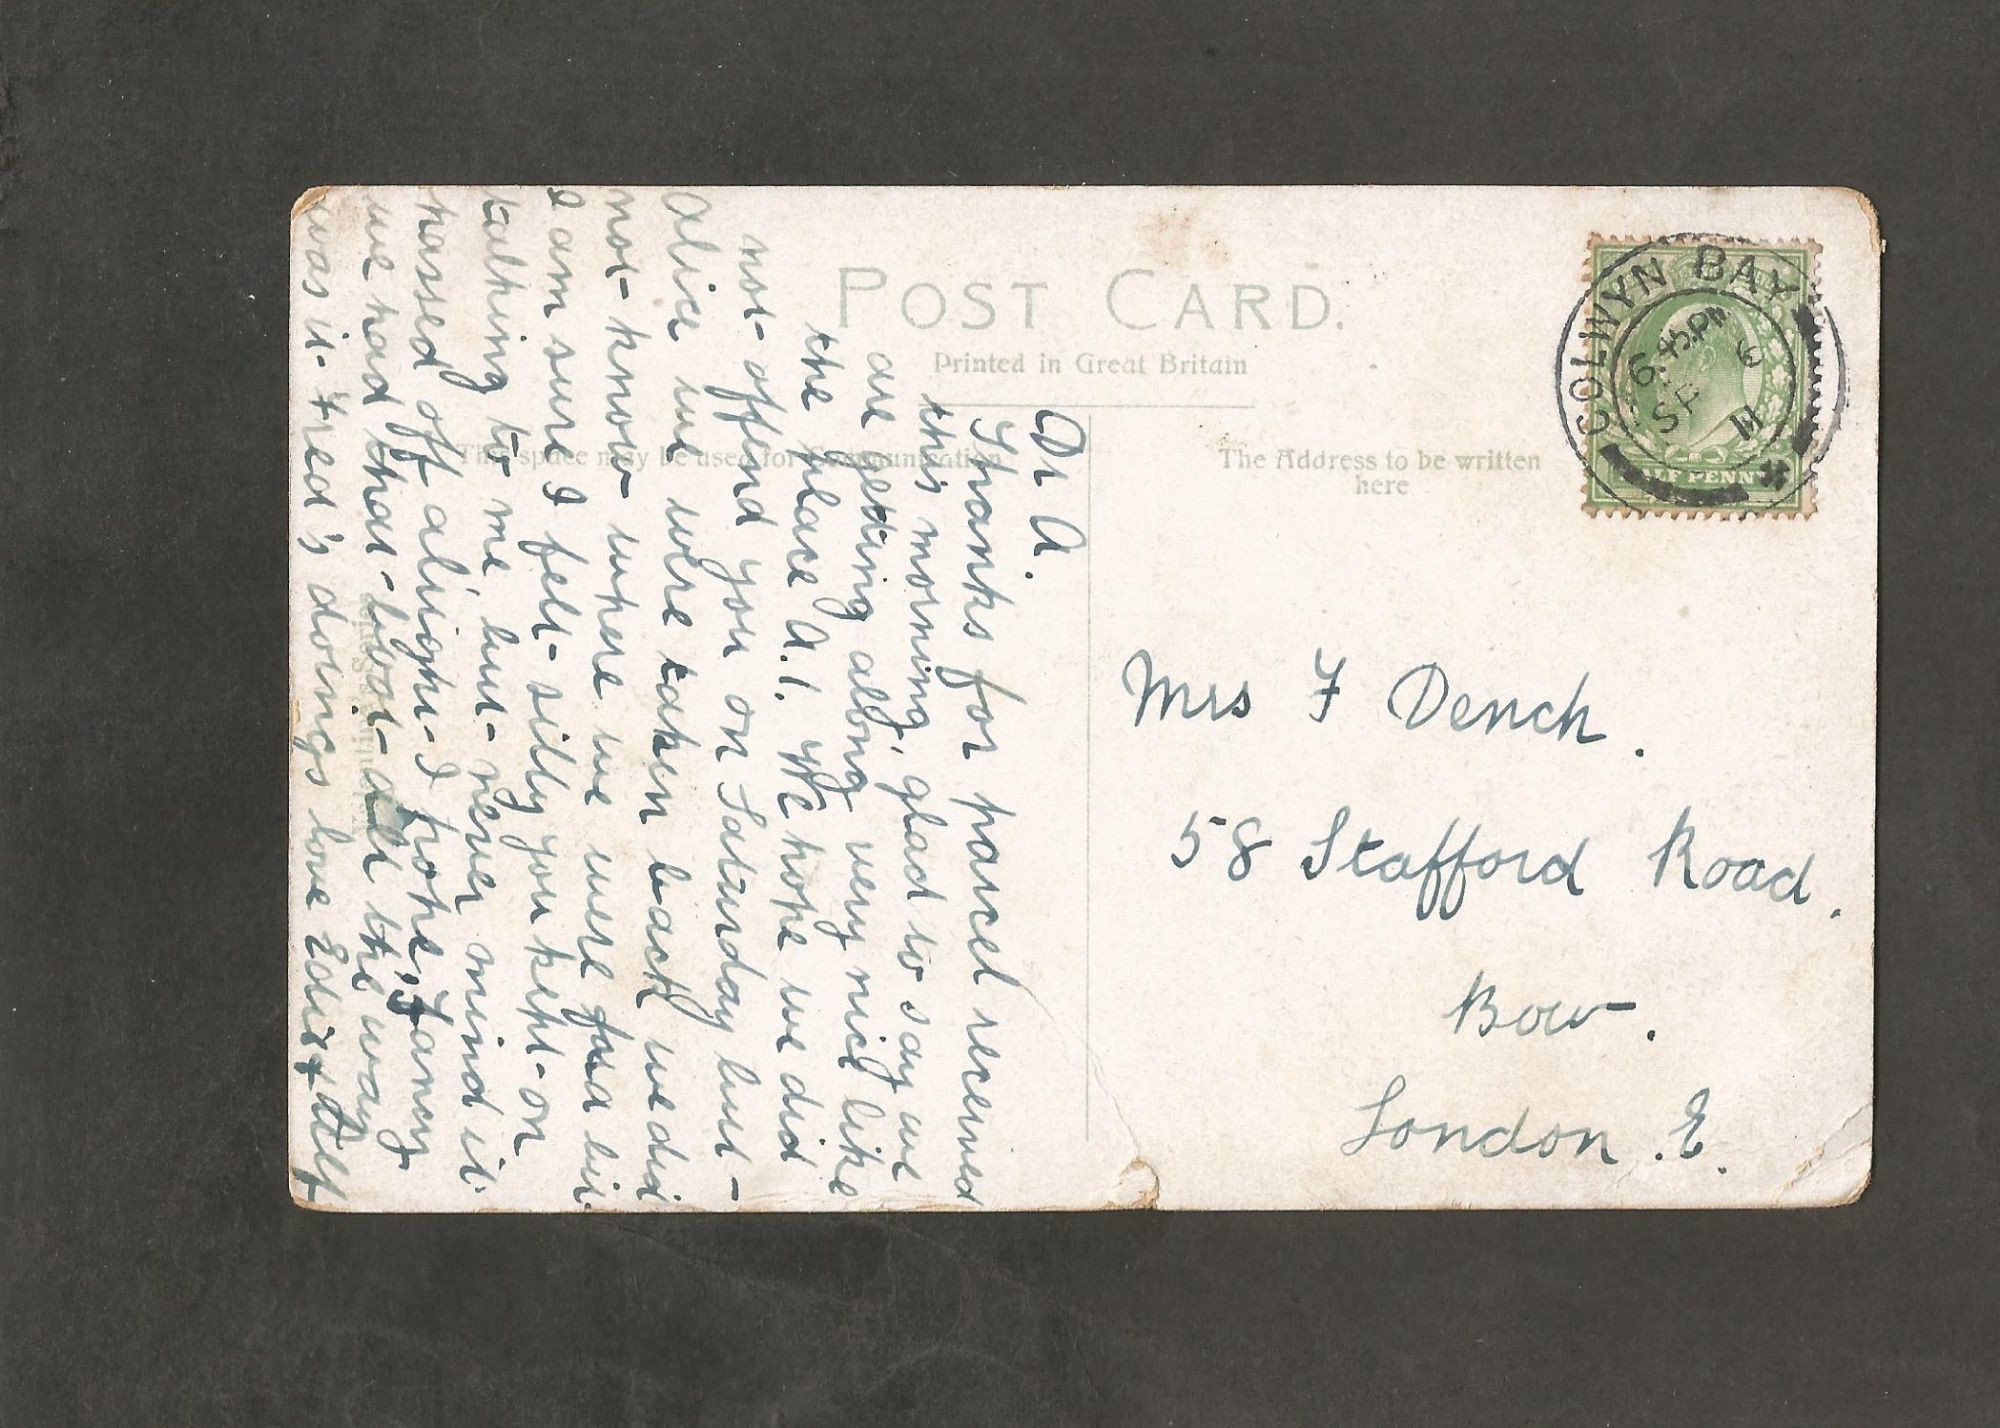 POST CARD.
Printed in Great Britain
This space may be used for Communication
The Address to be written
here
COLWYN BAY
6.45 PM
6
SP
11
HALF PENNY
Dr A.
Thanks for parcel received
this morning, glad to say we
are getting along very nice like
the place A.1. We hope we did
not offend you on Saturday but
Alice we were taken back we did
not know where we were for a bit
I am sure I felt silly you kept on
talking to me, but never mind it
passed off alright I hope, Fancy
we had that boat all the way
was it Fred's doings love Edie & Alf
Mrs F Dench.
58 Stafford Road.
Bow.
London. E.